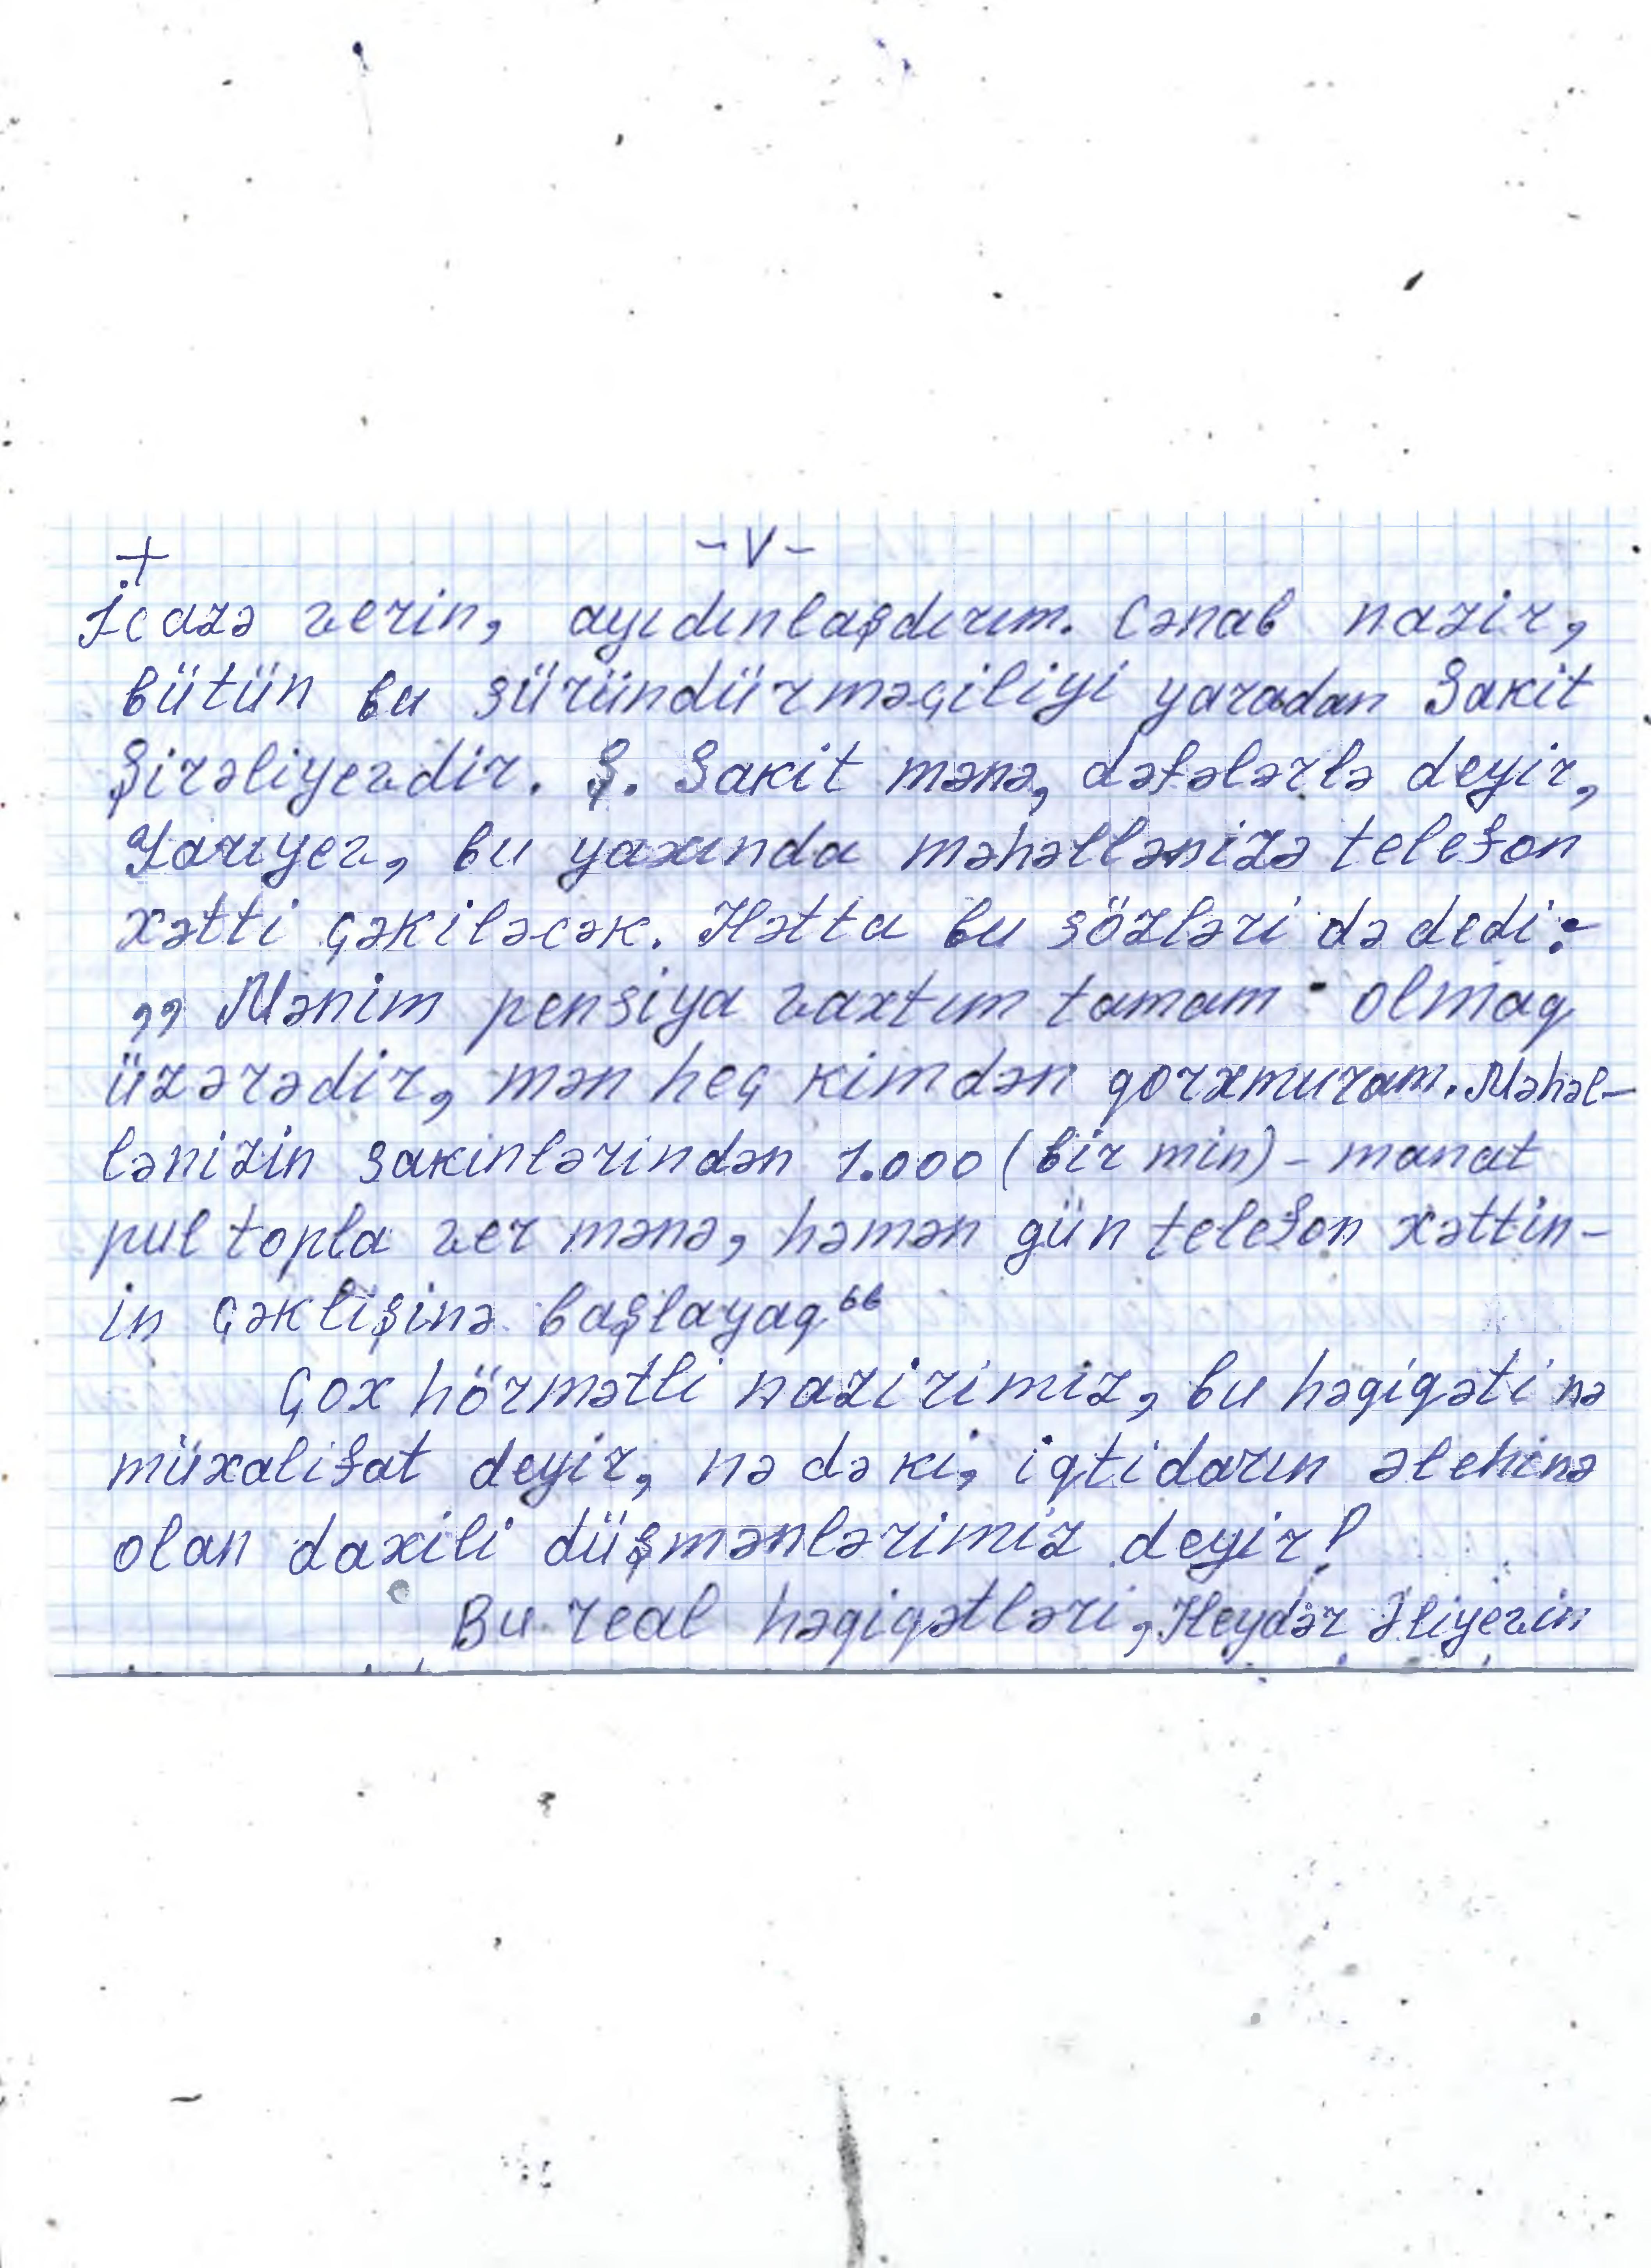 - V -
+
İcazə verin, ayıdınlaşdırım. Cənab nazir,
bütün bu süründürməçiliyi yaradan Sakit
Şirəliyevdir. Ş. Sakit mənə, dəfələrlə deyir,
Yarıyev, bu yaxında məhəllənizə telefon
xətti çəkiləcək. Hətta bu sözləri də dedi:-
,, Mənim pensiya vaxtım tamam olmaq
üzərədir, mən heç kimdən qorxmuram. Məhəl-
lənizin sakinlərindən 1.000 (bir min) - manat
pul topla ver mənə, həmən gün telefon xəttin-
in çəklişinə başlayaq“
Çox hörmətli nazirimiz, bu həqiqəti nə
müxalifat deyir, nə də ki, iqtidarın əlehinə
olan daxili düşmənlərimiz deyir!
Bu real həqiqətləri, Heydər Əliyevin